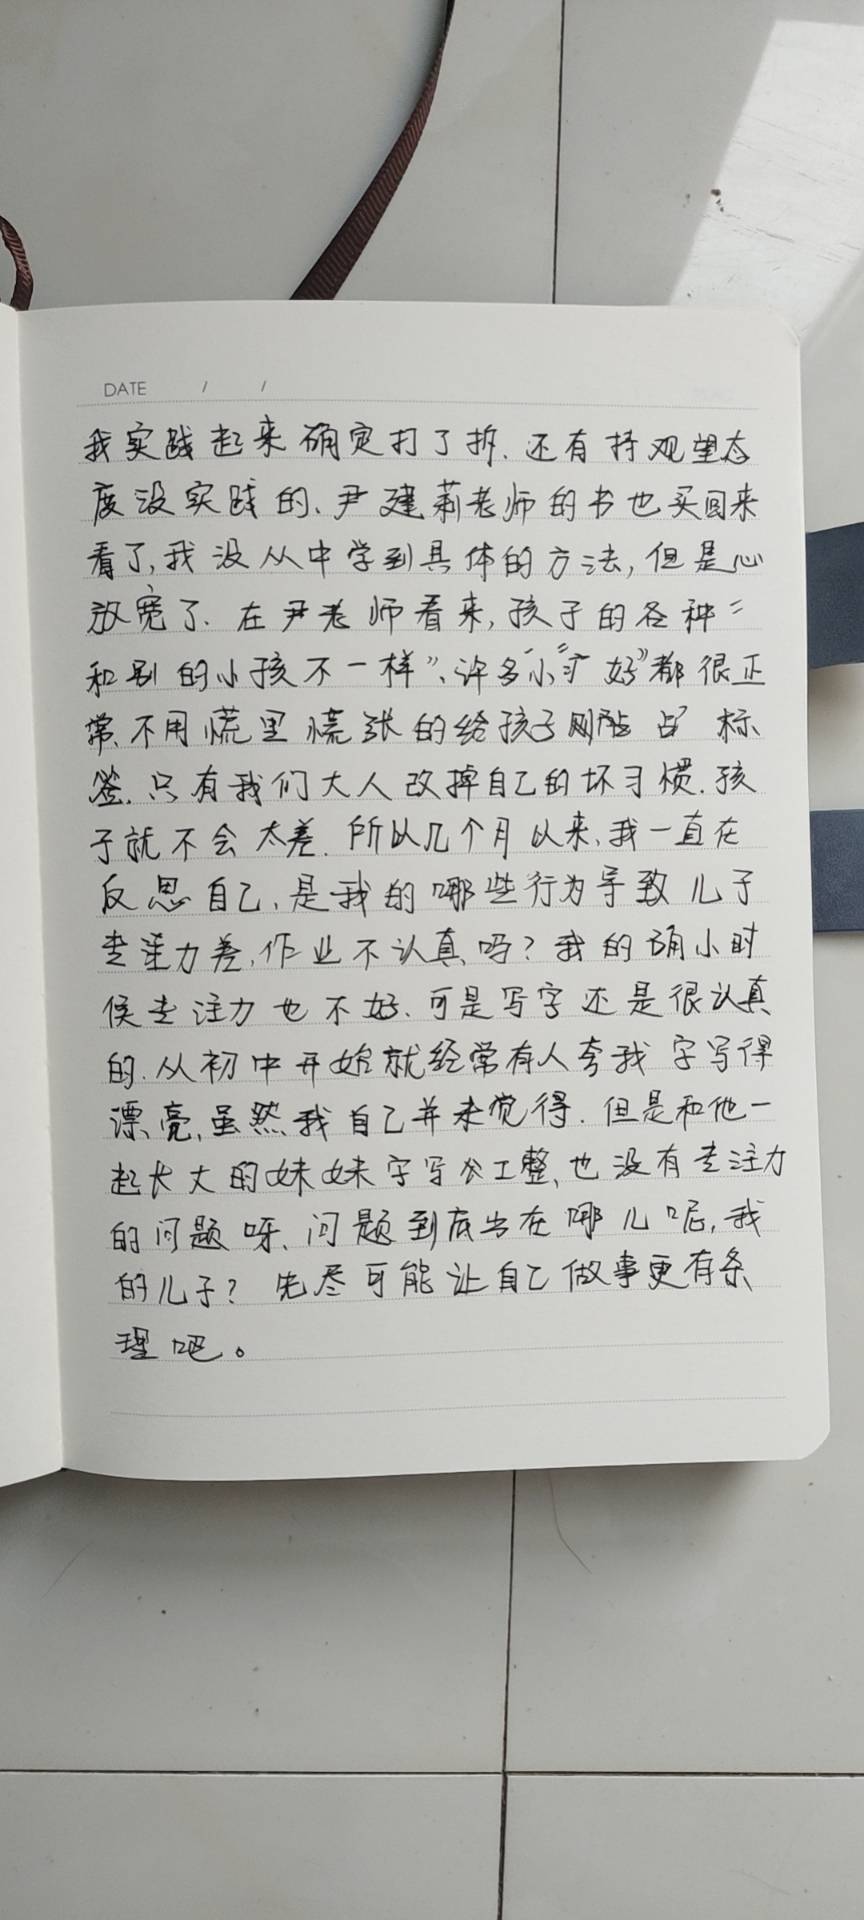 DATE / /
我实践起来确定打了折.还有持观望态
度没实践的、尹建莉老师的书也买回来
看了,我没从中学到具体的方法,但是心
放宽了.在尹老师看来,孩子的各种“
和别的小孩不一样”、许多“小 好”都很正
常、不用慌里慌张的给孩子 标
签.只有我们大人改掉自己的坏习惯.孩
子就不会太差.所以几个月以来、我一直在
反思自己,是我的哪些行为导致儿子
专注力差,作业不认真吗?我的确小时
候专注力也不好.可是写字还是很认真
的.从初中开始就经常有人夸我字写得
漂亮,虽然我自己并未觉得.但是和他一
起长大的妹妹字写公工整、也没有专注力
的问题呀、问题到底出在哪儿呢,我
的儿子?先尽可能让自己做事更有条
理吧。